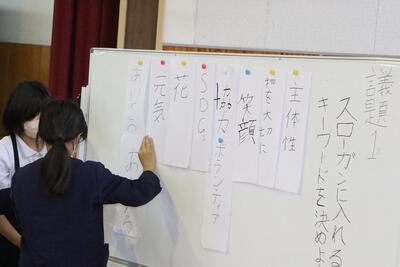 議題1
スローガンに入れる
キーワードを決めよ
主体性
物を大切に
笑顔
協力
ボランティア
SDGs
花
元気
あいさつ